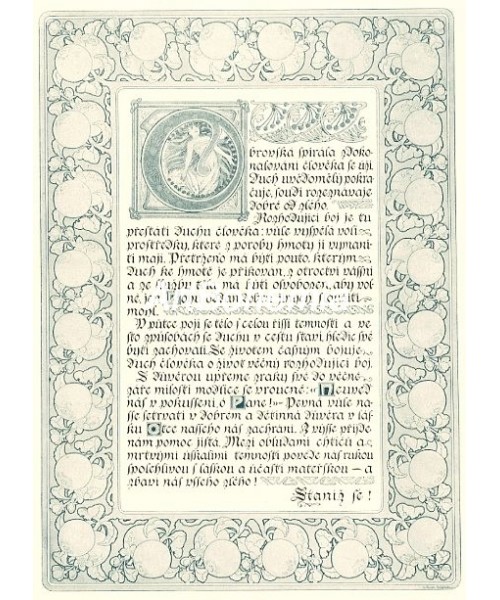 Obrovská spirála zdoko-
nalování člověka se uží.
Duch uvědomělý pokra-
čuje, soudí rozeznávaje
dobré od zlého.
Rozhodující boj je tu
přestáti duchu člověka: vůle vyspělá volí
prostředky, které z poroby hmoty ji vymani-
ti mají. Přetrženo má býti pouto, kterým
duch ke hmotě je přikován, z otroctví vášní
a ze služby těla má býti osvobozen, aby vol-
ně
mohl.
V půtce pojí se tělo s celou říší temnosti a ve
sto způsobách se duchu v cestu staví, hledíc své
býti zachovati. Se životem časným bojuje
duch člověka o život věčný rozhodující boj.
S důvěrou upřeme zraky své do věčné
záře milosti modlíce se vroucně: „Neuveď
nás v pokušení ó Pane!“ Pevná vůle na-
še setrvati v dobrém a dětinná důvěra v lás-
ku Otce našeho nás zachrání. Z výše přijde
nám pomoc jistá. Mezi obludami chtíčů a
mrtvými úskalími temnosti povede nás rukou
spolehlivou s láskou a účastí mateřskou – a
zbaví nás všeho zlého!
Staniž se!